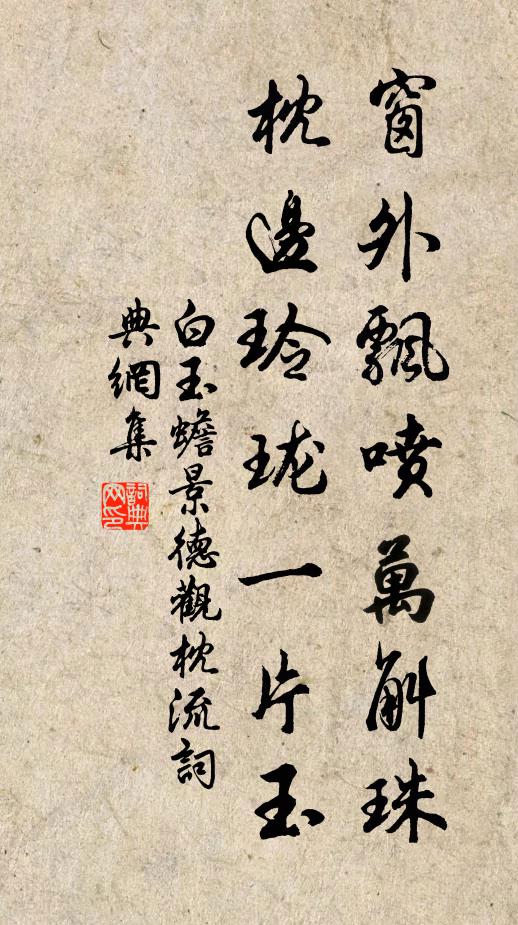 窗外飄喷萬斛珠
枕邊玲珑一片玉
白玉蟾景德觀枕流詞
典網集
詞典
网印